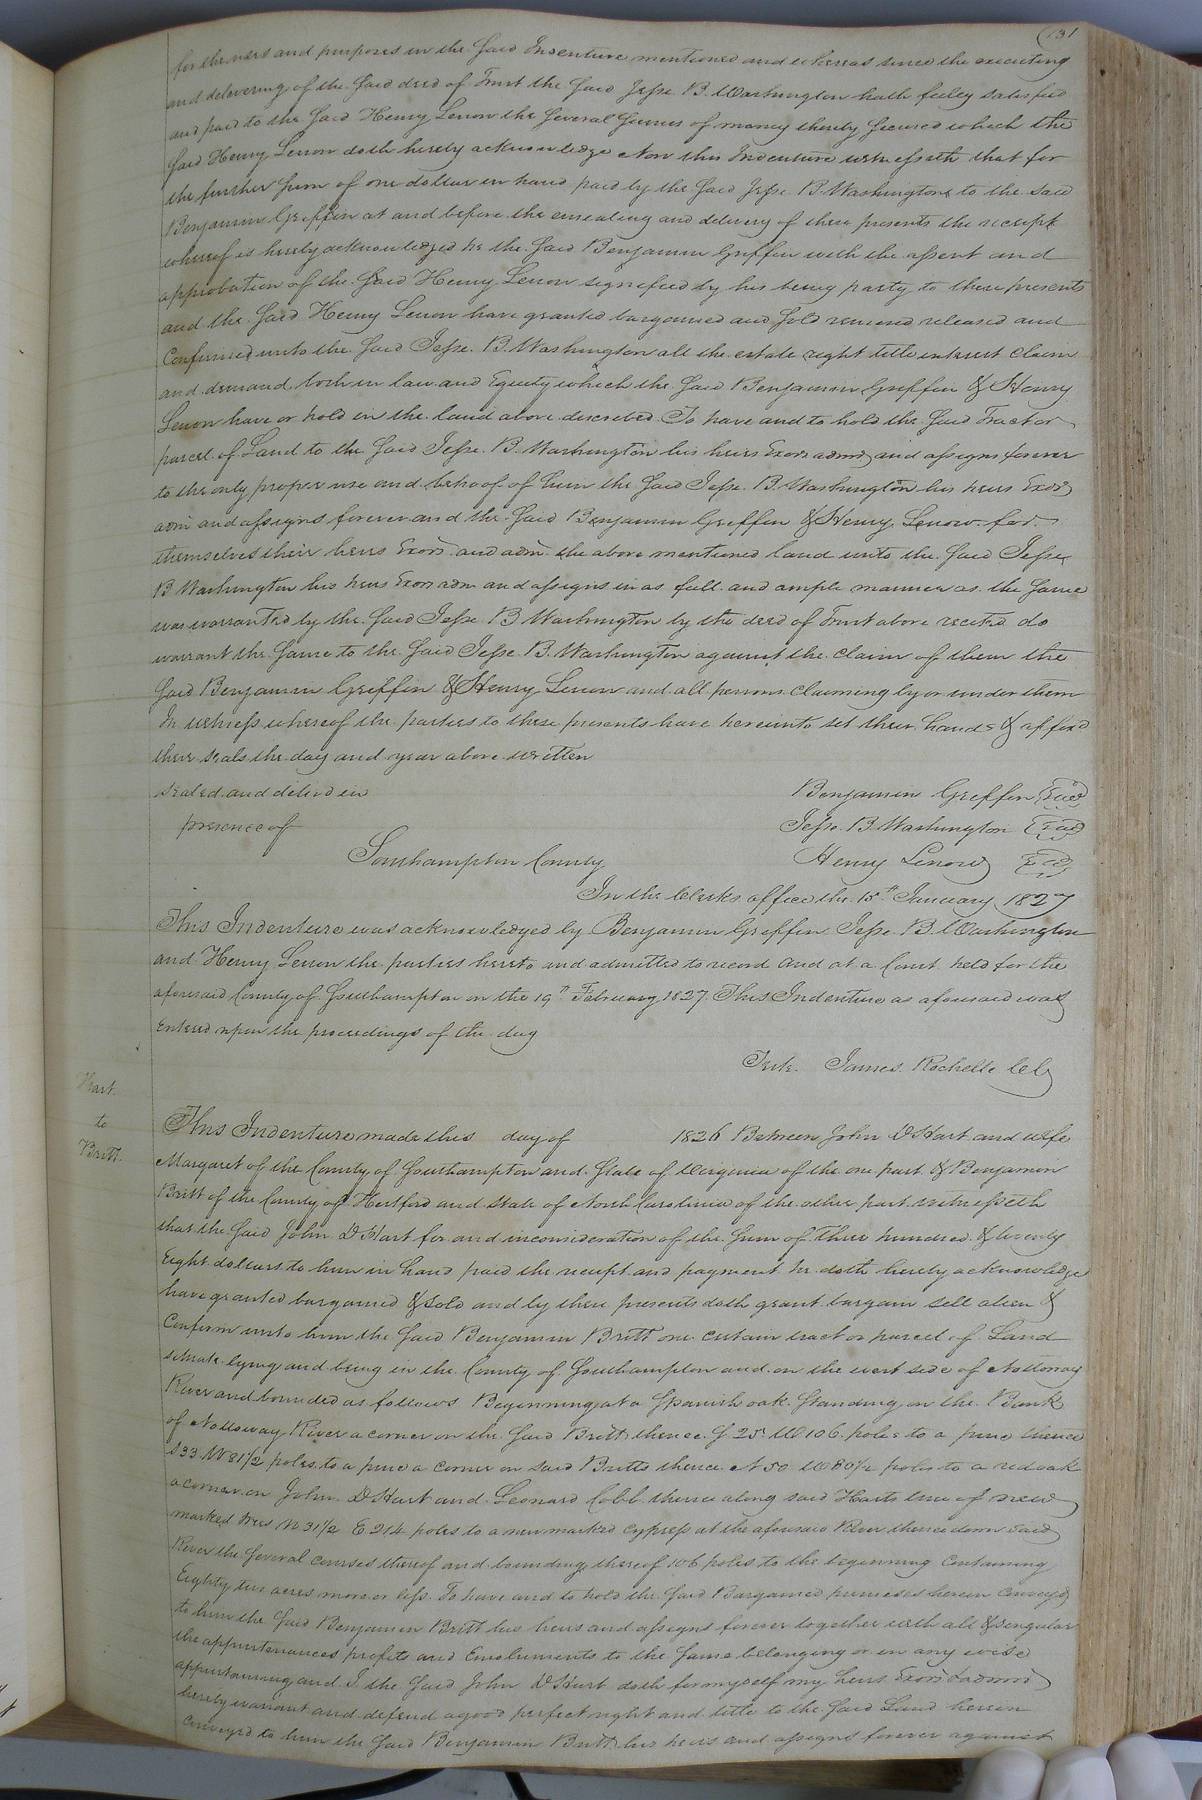 131
for the uses and purposes in the said Indenture mentioned and whereas since the executing
and delivering of the said deed of Trust the said Jesse B. Washington hath fully satisfied
and paid to the said Henry Lenow the several sums of money thereby secured which the
said Henry Lenow doth hereby acknowledge Now this Indenture witnesseth that for
the further sum of one dollar in hand paid by the said Jesse B. Washington to the said
Benjamin Griffin at and before the ensealing and delivery of these presents the receipt
whereof is hereby acknowledged he the said Benjamin Griffin with the assent and
approbation of the said Henry Lenow signified by his being party to these presents
and the said Henry Lenow have granted bargained and sold remised released and
Confirmed unto the said Jesse B. Washington all the estate right title interest claim
and demand both in law and Equity which the said Benjamin Griffin & Henry
Lenow have or hold in the land above described To have and to hold the said Tract or
parcel of Land to the said Jesse B. Washington his heirs Exors admrs and assigns forever
to the only proper use and behoof of him the said Jesse B. Washington his heirs Exors
adm and assigns forever and the said Benjamin Griffin & Henry Lenow for
themselves their heirs Exors and adm the above mentioned land unto the said Jesse
B Washington his heirs Exors adm and assigns in as full and ample manner as the same
was warranted by the said Jesse B Washington by the deed of Trust above recited do
warrant the same to the said Jesse B. Washington against the claim of them the
said Benjamin Griffin & Henry Lenow and all persons claiming by or under them
In witness whereof the parties to these presents have hereunto set their hands & affixd
their seals the day and year above written
sealed and delivd in Benjamin Griffin {Seal}
presence of Jesse B Washington {Seal}
Southampton County Henry Lenow {Seal}
In the Clerks office the 15th January 1827
This Indenture was acknowledged by Benjamin Griffin Jesse B. Washington
and Henry Lenow the parties hereto and admitted to record and at a Court held for the
aforesaid County of Southampton on the 19th February 1827 This Indenture as aforesaid was
Entered upon the proceedings of the day
Teste James Rochelle Clk
Hart
to
Britt
This Indenture made this day of 1826 Between John D Hart and wife
Margaret of the County of Southampton and State of Virginia of the one part & Benjamin
Britt of the County of Hertford and State of North Carolina of the other part witnesseth
that the said John D Hart for and inconsideration of the sum of Three hundred & twenty
Eight dollars to him in hand paid the receipt and payment he doth hereby acknowledge
have granted bargained & sold and by these presents doth grant bargain sell alien &
Confirm unto him the said Benjamin Britt one certain tract or parcel of Land
situate lying and being in the County of Southampton and on the west side of Nottoway
River and bounded as follows Beginning at a Spanish oak standing on the Bank
of Nottoway River a corner on the said Britt thence S 25 W 106 poles to a pine thence
S 33 W 81 1/2 poles to a pine a corner on said Britts thence N 50 W 80 1/2 poles to a redoak
a corner on John D Hart and Leonard Cobb thence along said Harts line of new
marked trees N 31 1/2 E 214 poles to a new marked cypress at the aforesaid River thence down said
River the several courses thereof and bounding thereof 106 poles to the beginning Containing
Eighty two acres more or less. To have and to hold the said Bargained premises herein Conveyd
to him the said Benjamin Britt his heirs and assigns forever together with all & singular
the appurtenances profits and Emoluments to the same belonging or in any wise
appertaining and I the said John D Hart doth for myself my heirs Exors & admrs
hereby warrant and defend a good perfect right and title to the said Land herein
Conveyed to him the said Benjamin Britt his heirs and assigns forever against